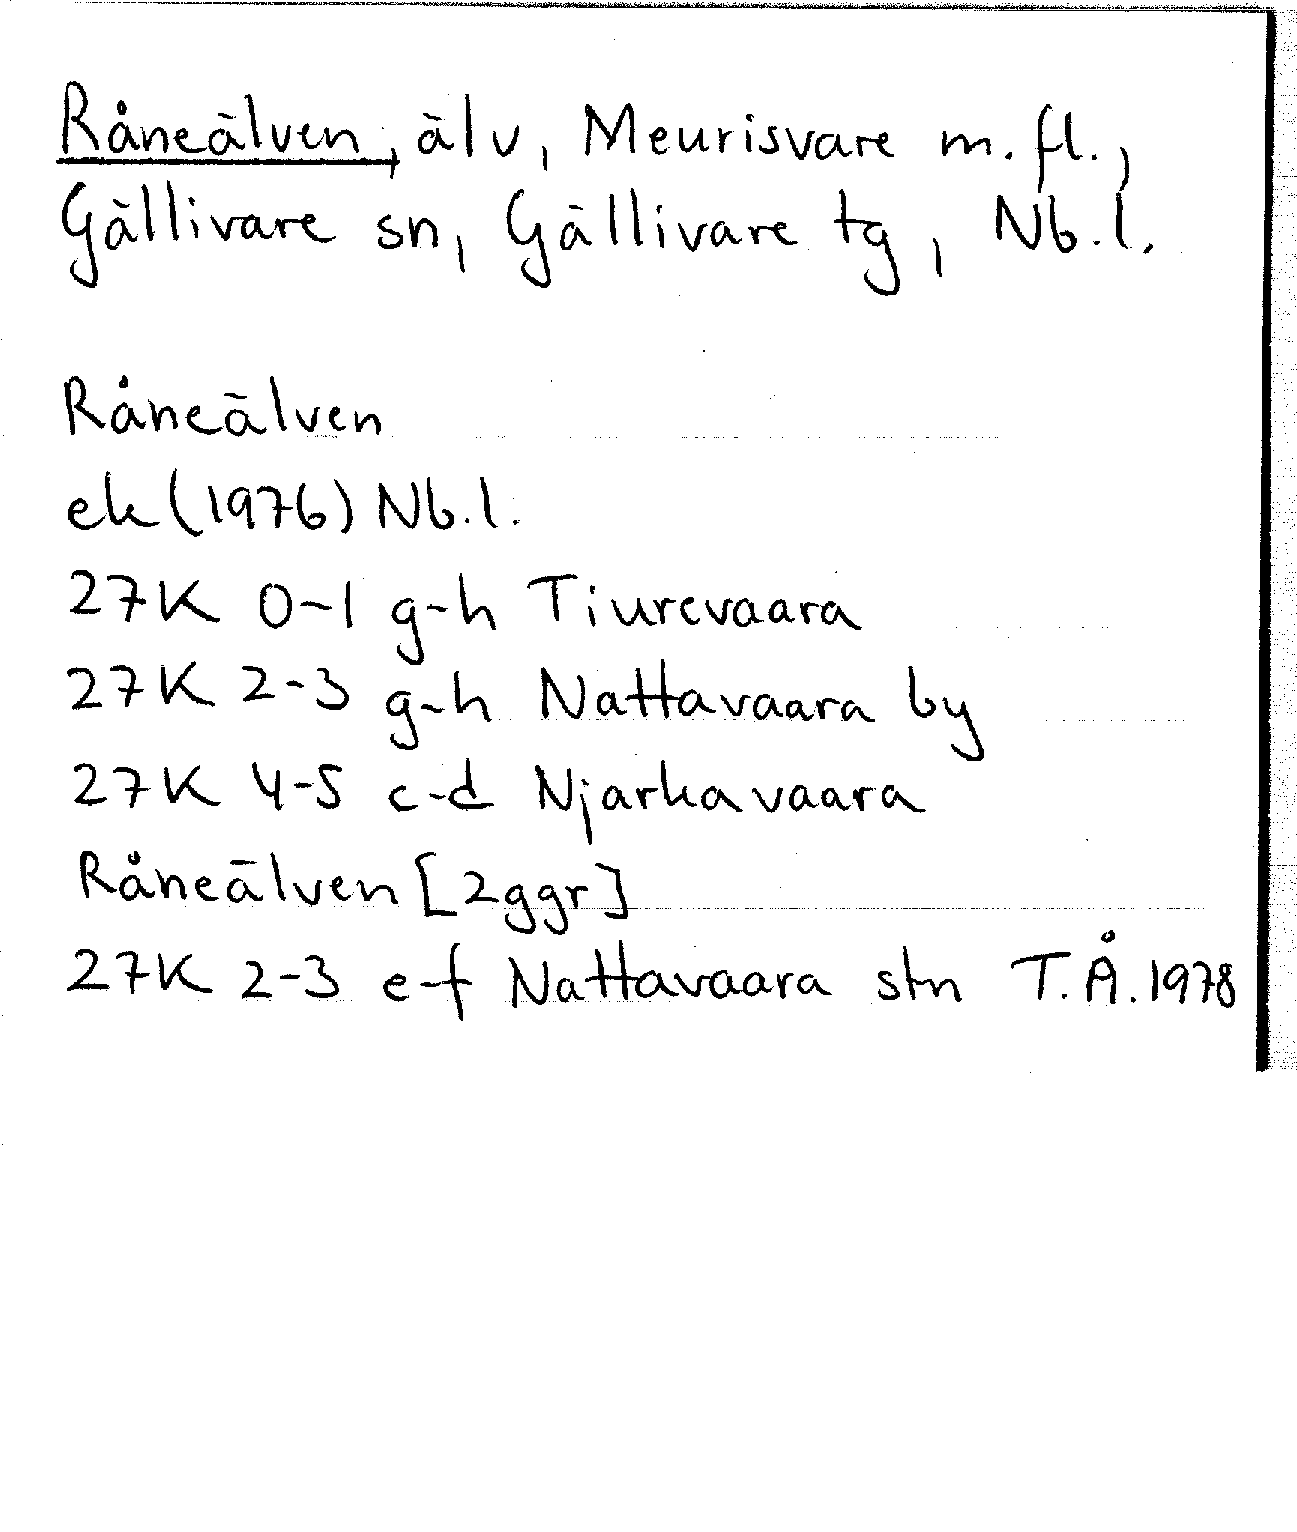 Råneälven, älv, Meurisvare m.fl.,
Gällivare sn, Gällivare tg, Nb.l.
Råneälven
ek (1976) Nb.l.
27K 0-1 g-h Tiurevaara
27K 2-3 g-h Nattavaara by
27K 4-5 c-d Njarkavaara
Råneälven [2ggr]
27K 2-3 e-f Nattavaara stn T.Å. 1978